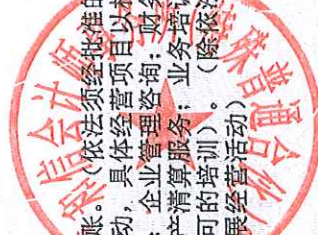 账。（依法须经批准的
动，具体经营项目以相
；企业管理咨询；财务
产清算服务；业务培训
可的培训）。（除依法
展经营活动）
信会计师
殊普通合伙